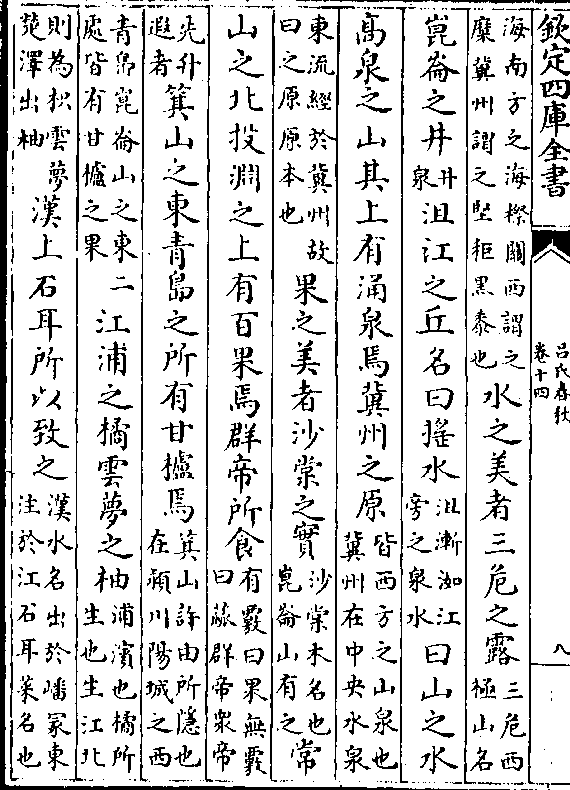 欽定四庫全書
呂氏春秋
卷十四
八
海南方之海穄關西謂之
糜冀州謂之堅秬黑黍也
水之美者三危之露
三危西
極山名
崑崙之井
井
泉
沮江之丘名曰搖水
沮漸洳江
旁之泉水
曰山之水
高泉之山其上有涌泉焉冀州之原
皆西方之山泉也
冀州在中央水泉
東流經於冀州故
曰之原原本也
果之美者沙棠之實
沙棠木名也
崑崙山有之
常
山之北投淵之上有百果焉群帝所食
有覈曰果無覈
曰蓏群帝衆帝
先升
遐者
箕山之東青島之所有甘櫨焉
箕山許由所隱也
在潁川陽城之西
青島崑崙山之東二
處皆有甘櫨之果
江浦之橘雲夢之柚
浦濱也橘所
生也生江北
則為枳雲夢
楚澤出柚
漢上石耳所以致之
漢水名出於嶓冢東
注於江石耳菜名也